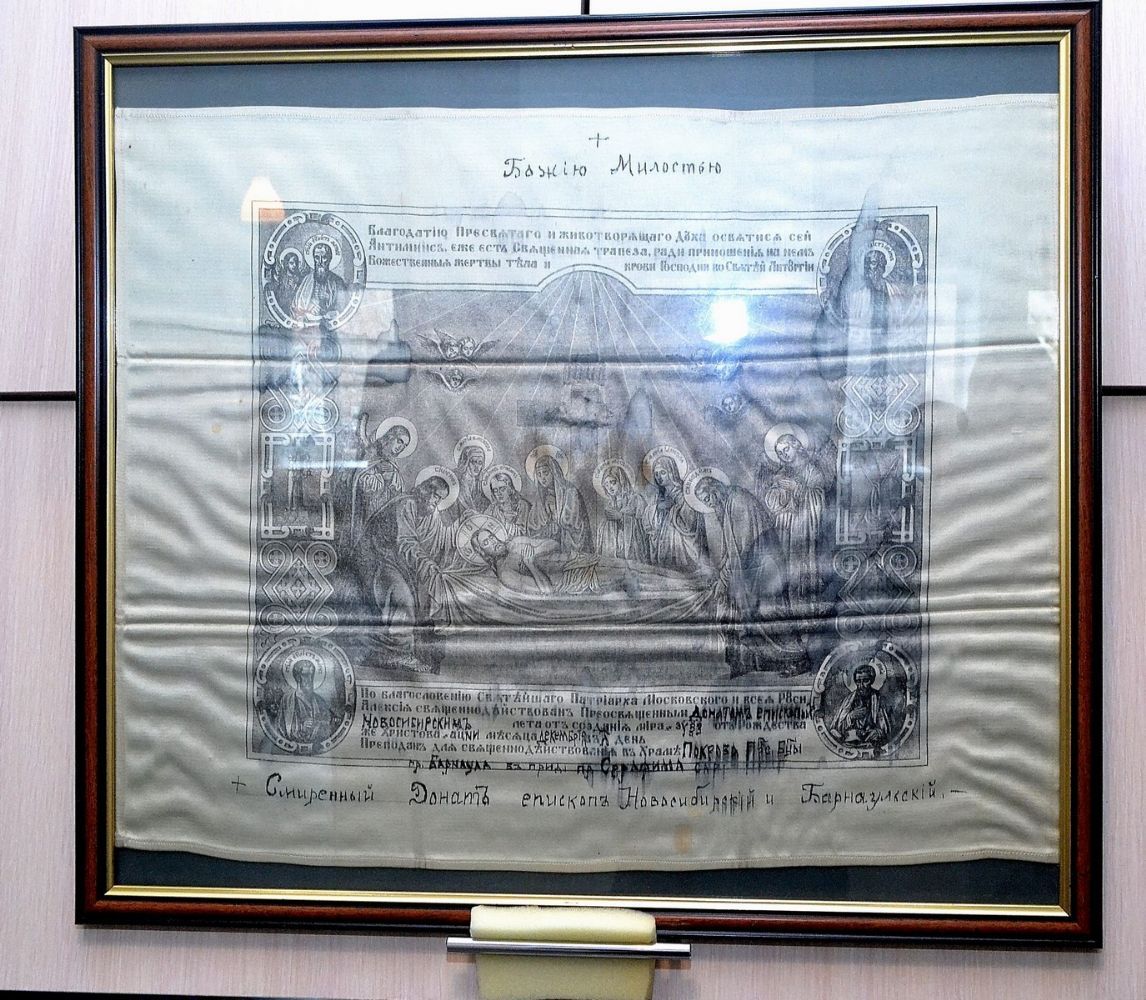 Божію Милостью
Благодатію Пресвѧтаго и животворѧщаго Дꙋха освѧтисѧ сей
Антиминсъ, еже есть Свѧщеннаѧ трапеза, ради приношеніѧ на немъ
Божественныѧ жертвы тѣла и крови Господни во Свѧтѣй Литꙋргіи
По благословенію Свѧтѣйшаго Патріарха Московского и всеѧ Рꙋсіи
Алексіѧ свѧщеннодѣйствованъ Преосвѧщеннымъ Донатомъ епископомъ
Новосибирскимъ лета отъ созданіѧ міра отъ Рождества
же Христова месѧца декембріѧ въ день
Преподанъ для свѧщеннодѣйствованіѧ въ Храмѣ Покрова
гр. Барнаула въ прид. пр. Серафима
+ Смиренный Донатъ епископъ Новосибирскій и Барнаульскій.